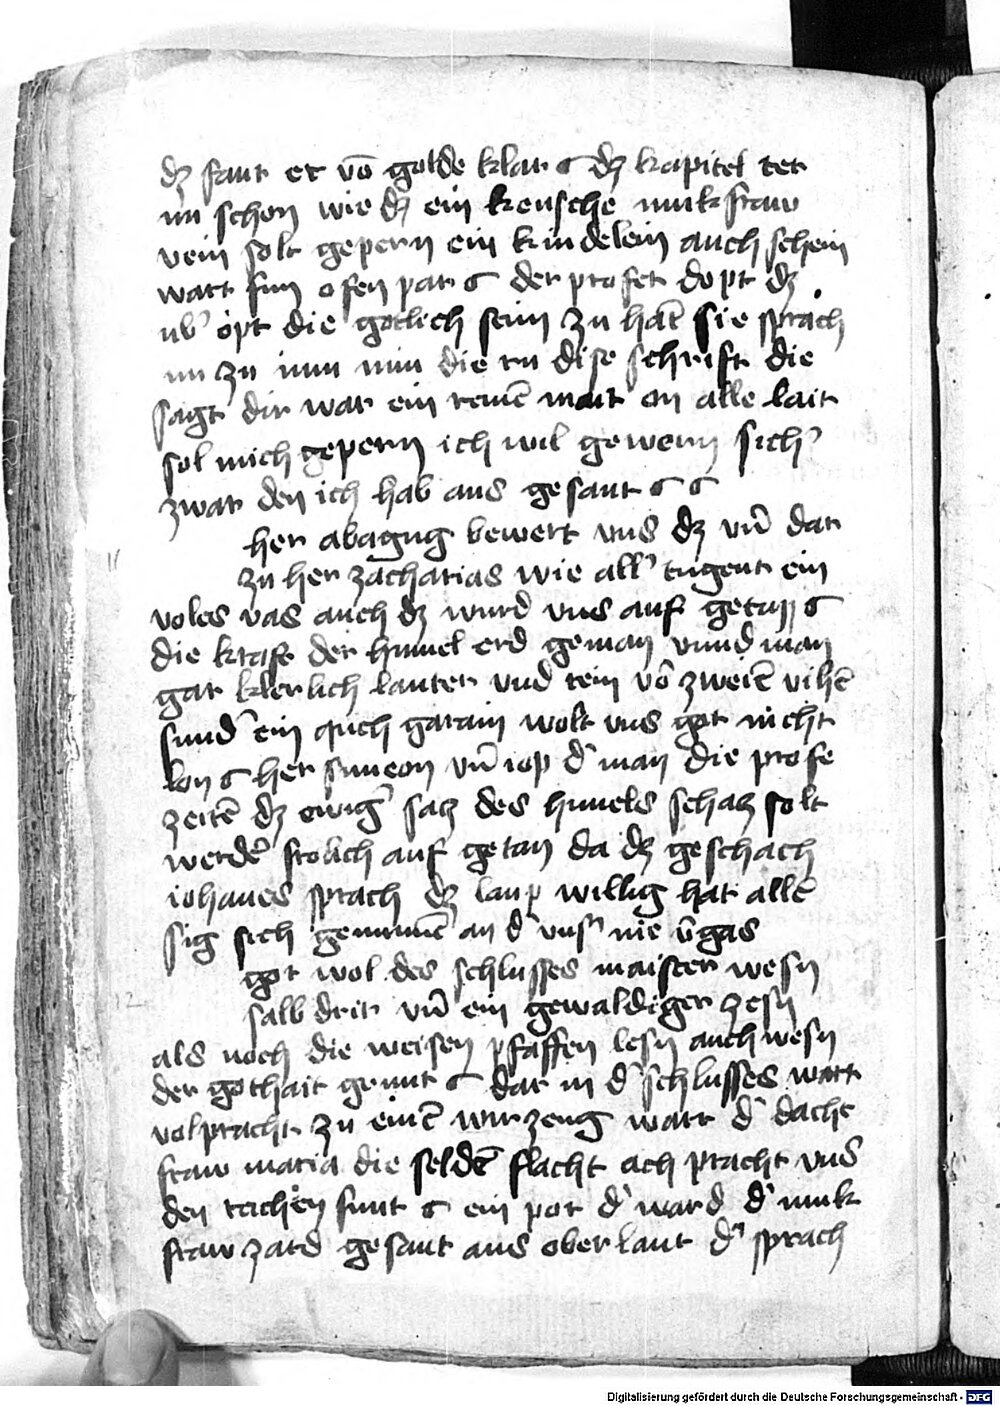 dz fant er vō golde klar dz kapitel ret
im schon wie dz ein keusche junkfraw
rein solt gepern ein kindelein auch schein
wart sun ofen par der profet dopt dz
ub' opt die gotlich sein zu hāt sie sprach
im zu nun nim die in dise schrift die
sagt dir war ein reinē mait on alle lait
sol mich gepern ich wil gewern sich'
zwar den ich hab aus gesant
her abagug bewert uns dz un̄ dar
11
zu her zacharias wie all' tugent ein
voles vas auch dz wurd uns auf getan
die kraft der himel erd geman vnnd man
gar klerlich lauter vnd rein vō zweiē vihē
sund' ein quich gatain wolt uns got nicht
lon her simeon vn̄ iop d' man die profe
zeitē dz ewig' saz des himels schaz solt
werdē frolich auf getan da dz geschach
iohanes sprach dz lamp willig hat allē
sig sich genumē an d' uns' nie v̄gas
got wol des schlusses maister wesn
12
salb drit vn̄ ein gewaldiger zesn
als noch die weisen pfaffen lesn auch wesn
der gothait grunt dar in d' schlusses wart
volpracht zu einē wirzeug wart d' dacht
fraw maria die seldē flacht ach pracht uns
den rachen funt ein pot d' ward d' iunk
fraw zard gesant aus ober lant d' sprach
Digitalisierung gefördert durch die Deutsche Forschungsgemeinschaft - DFG